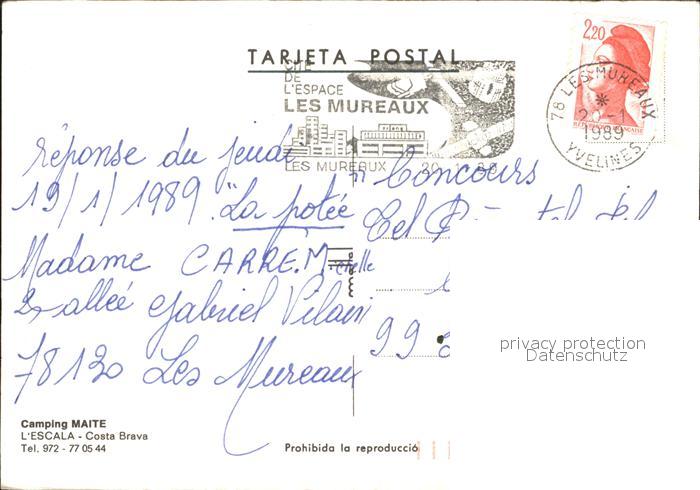 TARJETA POSTAL
2,20
CITE
DE
L'ESPACE
LES MUREAUX
LES MUREAUX
78 LES MUREAUX
1989
YVELINES
réponse du jeudi
19/1/1989 "La potée
Madame CARRE.M
allée Gabriel
78130 Les Mureaux
Concours
99
privacy protection
Datenschutz
Camping MAITE
L'ESCALA - Costa Brava
Tel. 972 - 77 05 44
Prohibida la reproducció